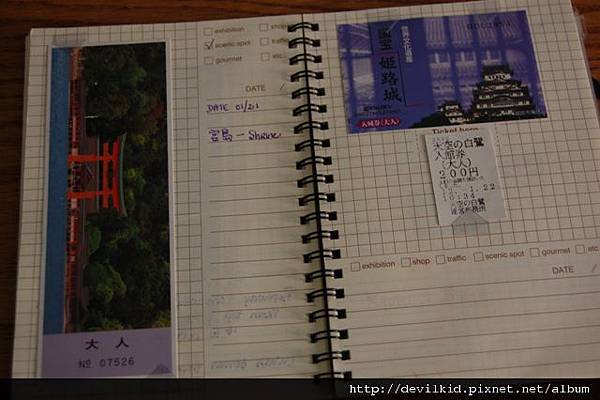 exhibition
shop
scenic spot
traffic
gourmet
DATE /
DATE 01/21
宮島 - Shrine
大人
№ 07526
世界文化遺産
国宝 姫路城
入城券(大人)
Ticket here
天空の白鷺
入館券
(大人)
200円
1.22
10:34
天空の白鷺
exhibition shop traffic scenic spot gourmet etc
DATE /
http://devilkid.pixnet.net/album